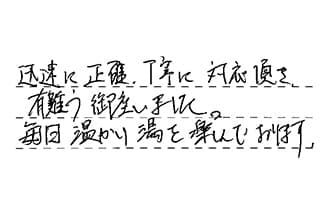 迅速に正確、丁寧に対応頂き、
有難う御座いました。
毎日温かい湯を楽しんでおります。